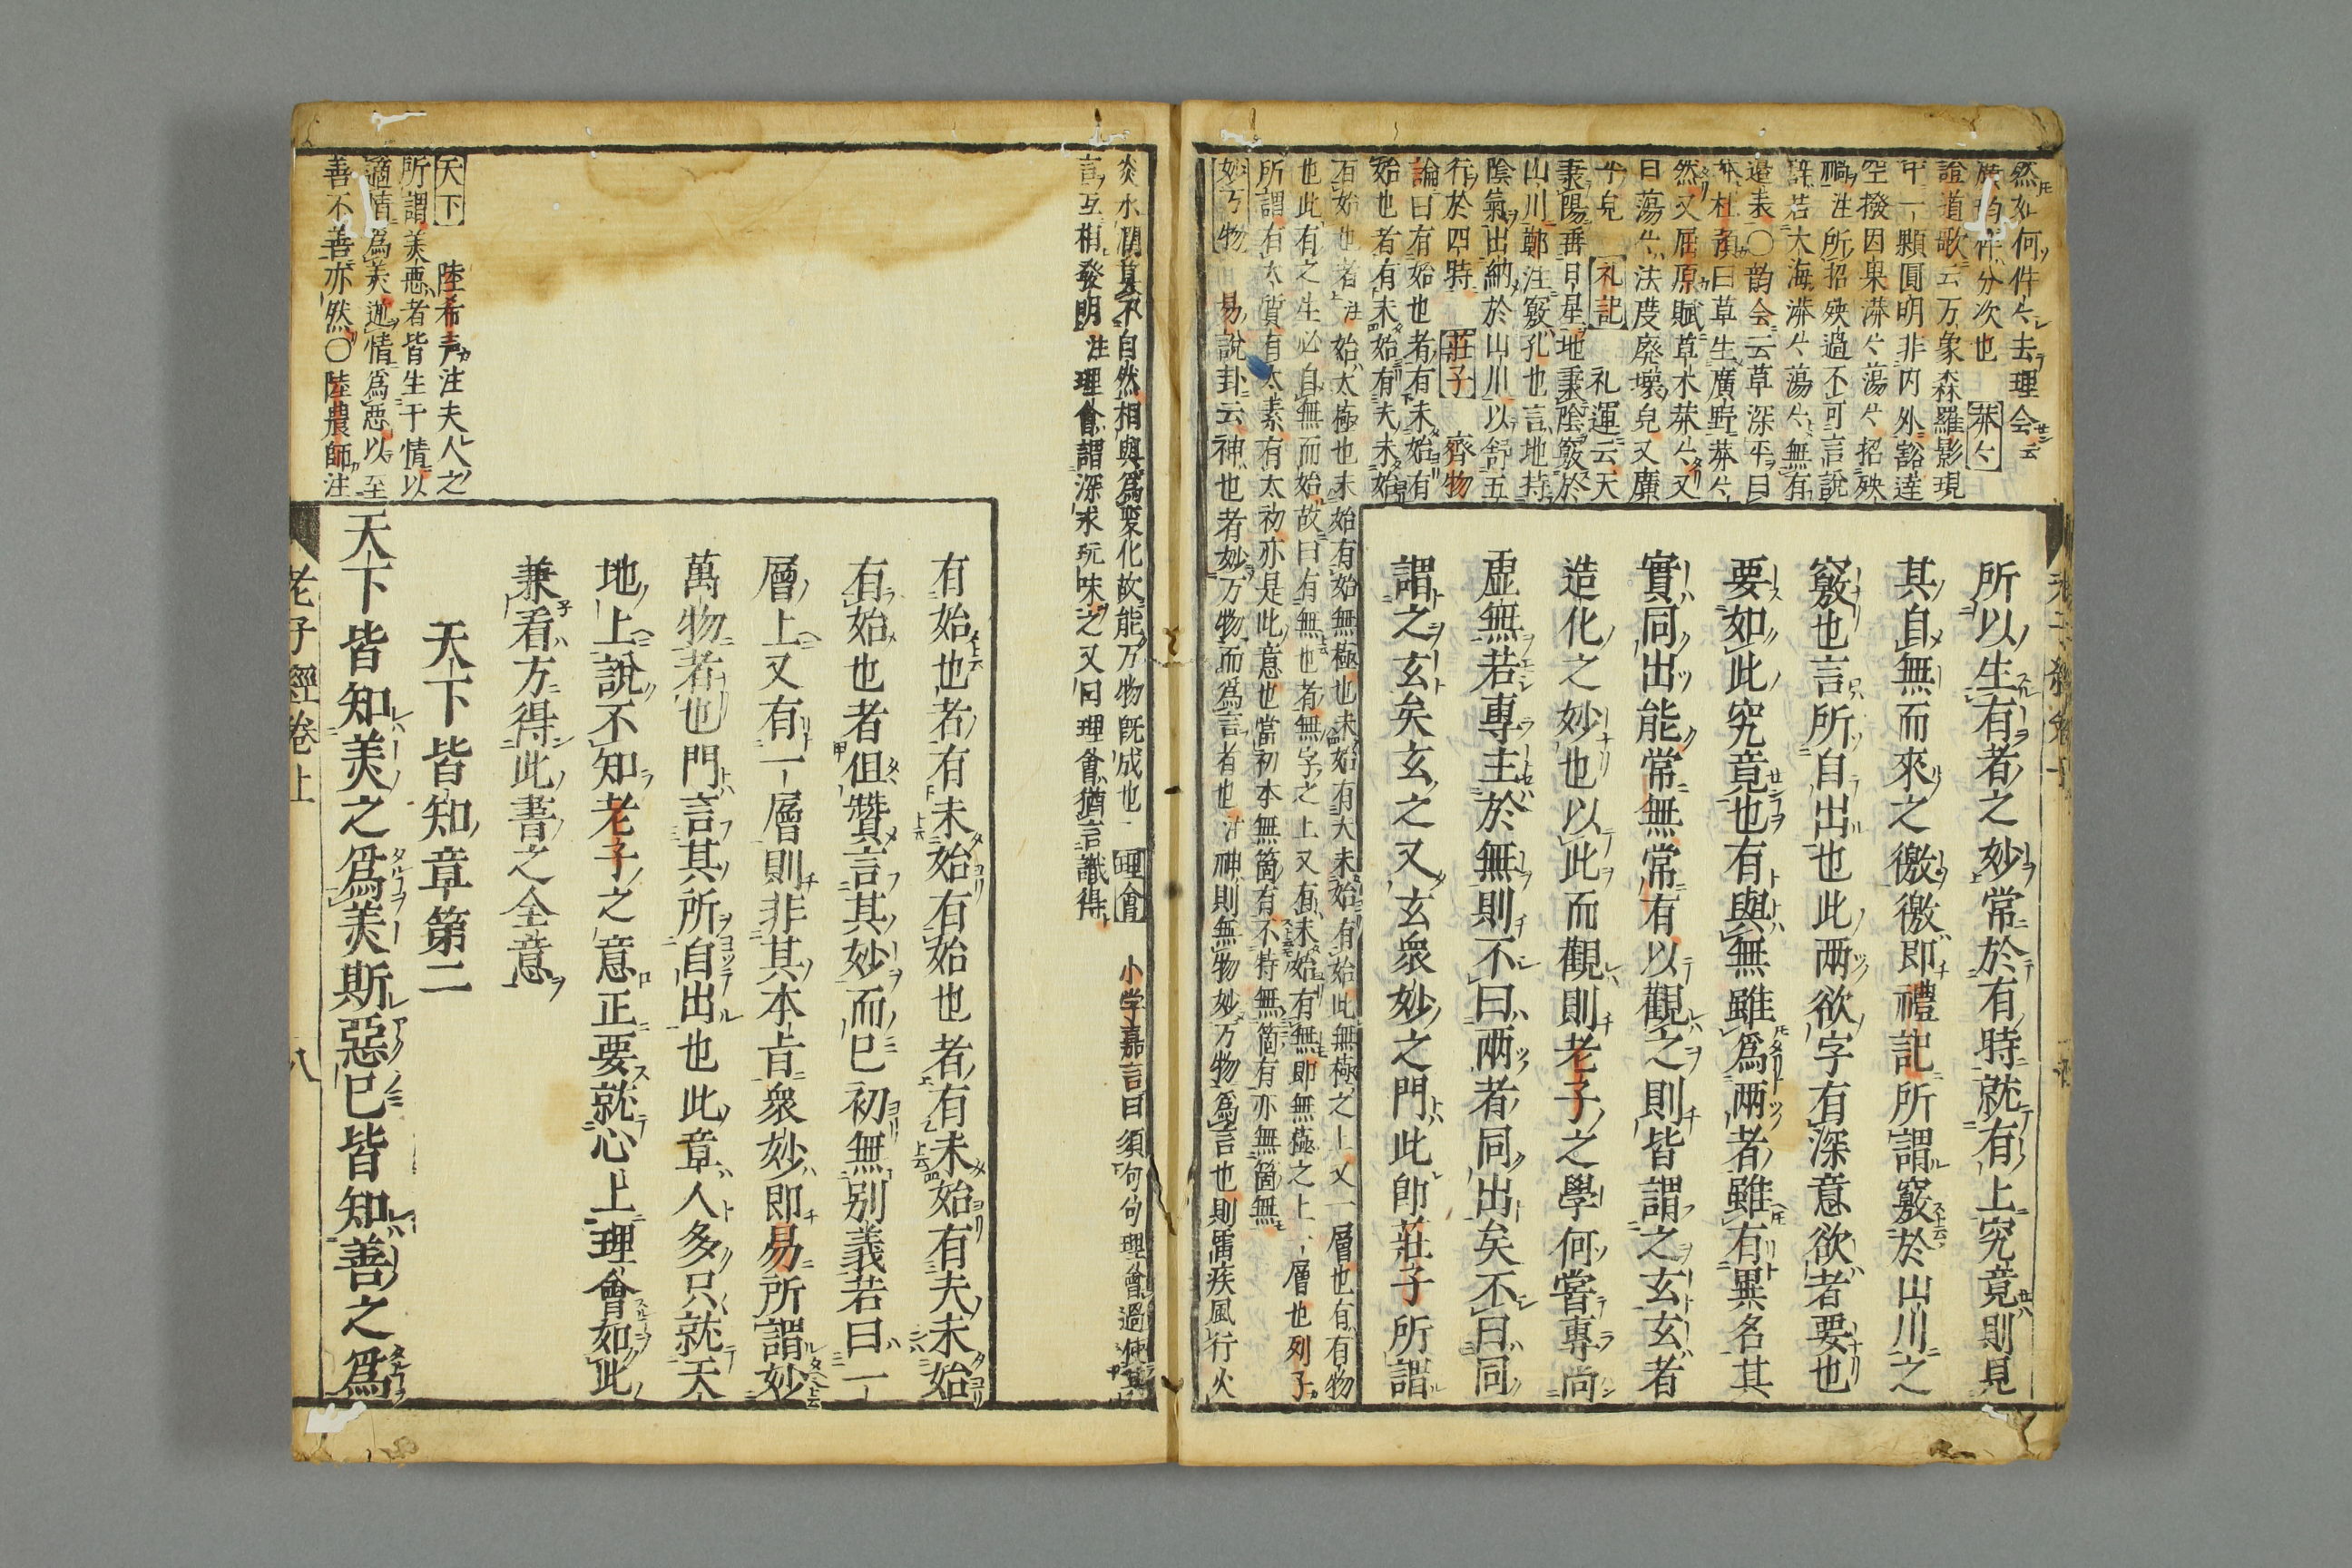 所以生有者之妙常於有時就有上究竟則見
其自無而來之徼徼即禮記所謂竅於山川之
竅也言所自出也此兩欲字有深意欲者要也
要如此究竟也有與無雖爲兩者雖有異名其
實同出能常無常有以觀之則皆謂之玄玄者
造化之妙也以此而觀則老子之學何嘗專尚
虛無若專主於無則不曰兩者同出矣不曰同
謂之玄矣玄之又玄衆妙之門此即莊子所謂
有始也者有未始有始也者有未始有夫未始
有始也者但贊言其妙而已初無別義若曰一
層上又有一層則非其本旨衆妙即易所謂妙
萬物者也門言其所自出也此章人多只就天
地上說不知老子之意正要就心上理會如此
兼看方得此書之全意
天下皆知章第二
天下皆知美之爲美斯惡已皆知善之爲
然如何件〻去理会
證道歌云万象森羅影現
中一顆圓明非内外豁達
空撥因果莽〻蕩〻招殃
禍注所招殃過不可言說
許若大海漭〻蕩〻無有
邉表〇韵会云草深平曰
莽杜預曰草生廣野莽〻
然又屈原賦草木莽〻又
曰蕩〻法度廃壞皃又廣
平皃 礼記 礼運云天
秉陽垂日星地秉陰竅於
山川鄭注竅孔也言地持
陰氣出納於山川以舒五
行於四時 莊子 齊物
論曰有始也者有未始有
始也者有未始有夫未始
有始也者注始太極也未始有始無極也未始有夫未始有始此無極之上又一層也有有物
也此有之生必自無而始故曰有無也者無字之上又有未始有無即無極之上一層也列子
所謂有太質有太素有太初亦是此意也當初本無箇有不特無箇有亦無箇無
妙万物 易說卦云神也者妙万物而爲言者也注神則無物妙万物爲言也則雷疾風行火
炎水潤莫不自然相與爲変化故能万物既成也 理會 小学嘉言曰須句句理會過使其
言互相發明 注理會謂深求玩味之又曰理會猶言識得
天下 陸希声注夫人之
所謂美悪者皆生于情以
適情爲美逆情爲悪以至
善不善亦然〇陸農師注
老子經卷上
八